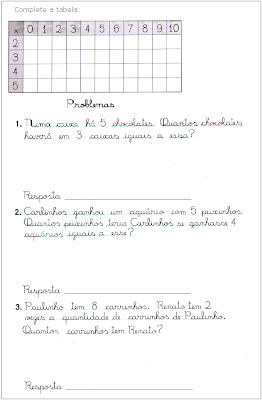 Complete a tabela:
x 0 1 2 3 4 5 6 7 8 9 10
2
3
4
5
Problemas
1. Numa caixa há 5 chocolates. Quantos chocolates
haverá em 3 caixas iguais a essa?
Resposta
2. Carlinhos ganhou um aquário com 5 peixinhos.
Quantos peixinhos teria Carlinhos se ganhasse 4
aquários iguais a esse?
Resposta
3. Paulinho tem 8 carrinhos. Renato tem 2
vezes a quantidade de carrinhos de Paulinho.
Quantos carrinhos tem Renato?
Resposta